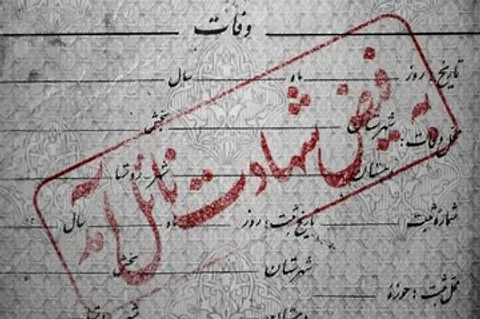 وفات
تاریخ: روز ماه سال
محل وفات: شهرستان بخش
دهستان شهر-روستا
به فیض شهادت نائل آمد
شماره ثبت تاریخ ثبت: روز ماه سال
شهرستان بخش
محل ثبت: حوزه